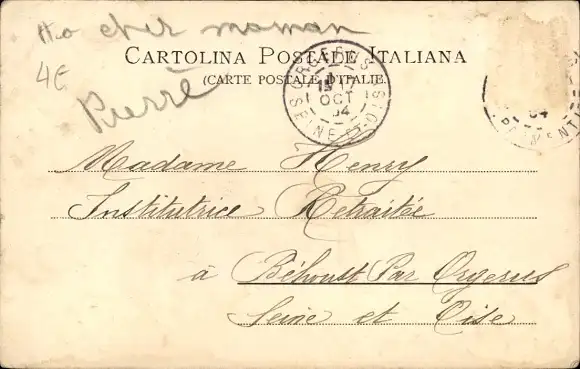 cher maman
CARTOLINA POSTALE ITALIANA
(CARTE POSTALE D'ITALIE.
4€
Pierre
ORGERUS
15
OCT
04
SEINE-ET-OISE
04
Madame Henry
Institutrice Retraitée
à Béhoust Par Orgerus
Seine et Oise